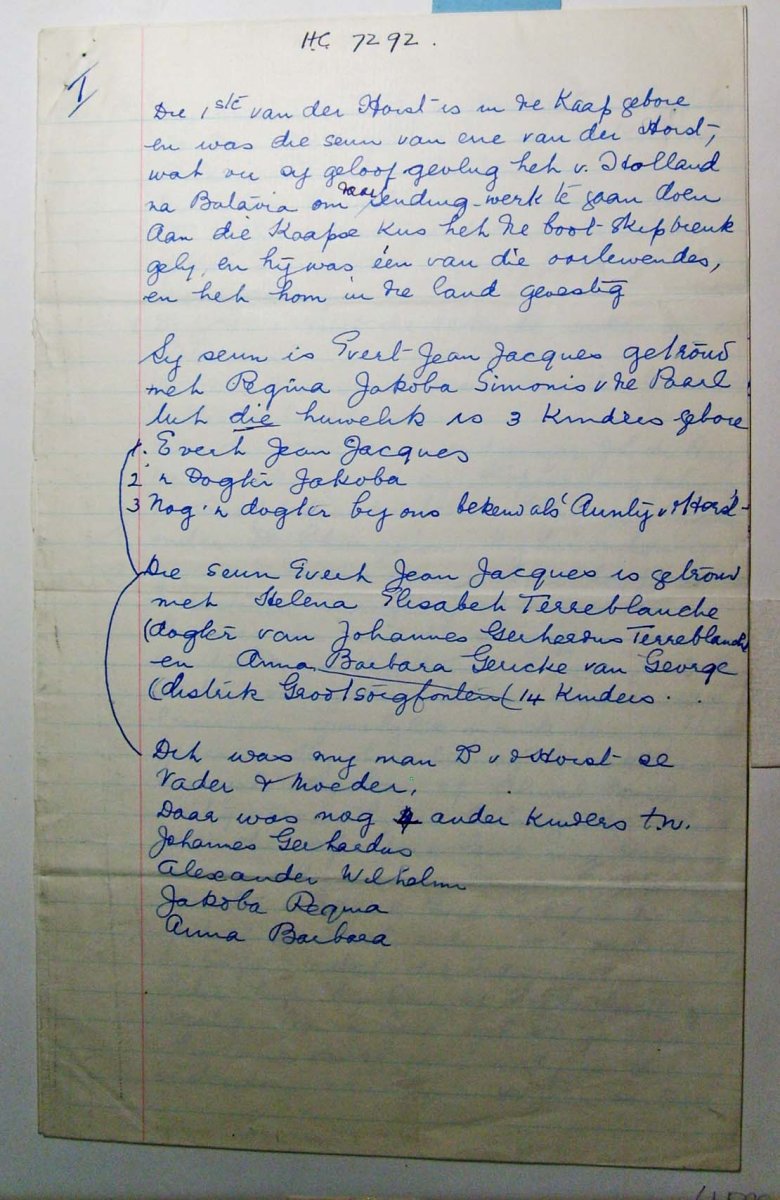 H.C. 7292.
I
Die 1ste van der Horst is in die Kaap gebore
en was die seun van ene van der Horst,
wat vir sy geloof gevlug het v. Holland
na Batavia om daar sending-werk te gaan doen
Aan die Kaapse kus het die boot skipbreuk
gely, en hy was één van die oorlewendes,
en het hom in die land gevestig
Sy seun is Evert Jean Jacques getroud
met Regina Jakoba Simonis v die Paarl
Uit die huwelik is 3 kinders gebore
1. Evert Jean Jacques
2 'n Dogter Jakoba
3 Nog 'n dogter by ons bekend als Aunty v d Horst
Die seun Evert Jean Jacques is getroud
met Helena Elisabeth Terreblanche
(dogter van Johannes Gerhardus Terreblanche
en Anna Barbara Gericke van George
(distrik Grootsorgfontein( 14 kinders.
Dit was my man D v d Horst se
Vader & Moeder,
Daar was nog 4 ander kinders t.w.
Johannes Gerhardus
Alexander Wilhelm
Jakoba Regina
Anna Barbara